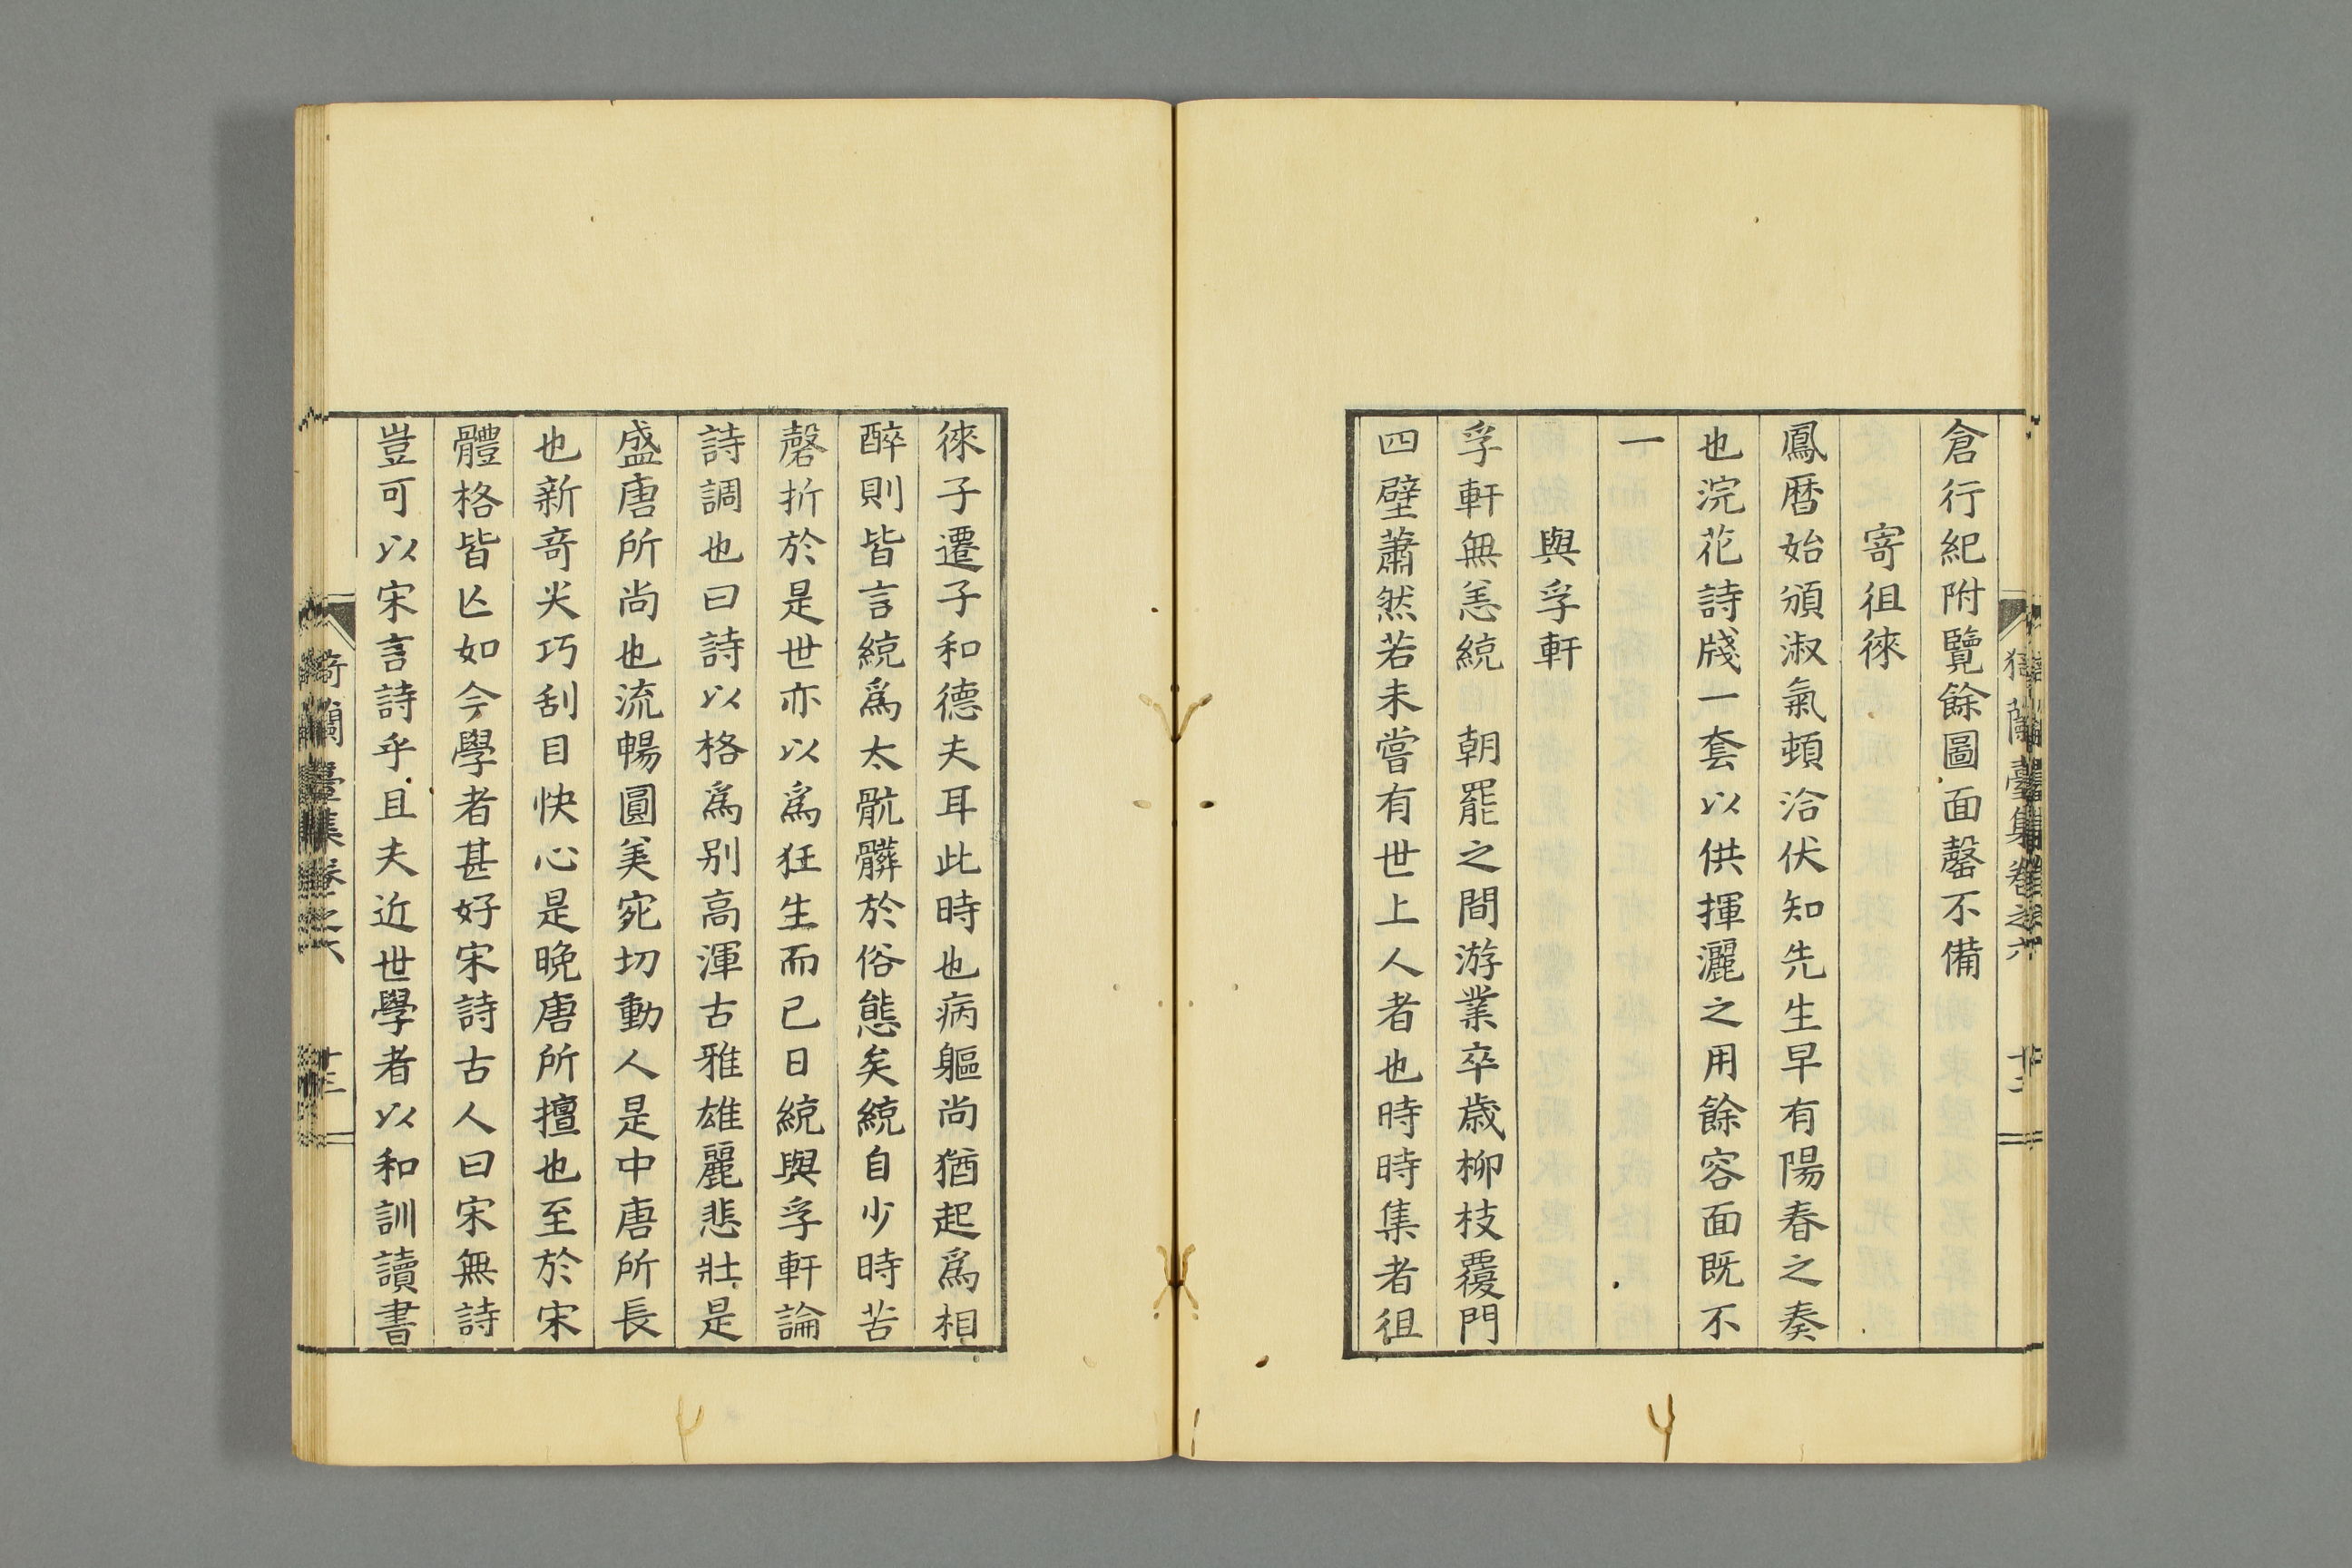 倉行紀附覽餘圖面罄不備
寄徂徠
鳳曆始頒淑氣頓洽伏知先生早有陽春之奏
也浣花詩牋一套以供揮灑之用餘容面既不
一
與孚軒
孚軒無恙統　朝罷之間游業卒歲柳枝覆門
四壁蕭然若未嘗有世上人者也時時集者徂
徠子遷子和德夫耳此時也病軀尚猶起爲相
醉則皆言統爲太骯髒於俗態矣統自少時苦
磬折於是世亦以爲狂生而已日統與孚軒論
詩調也曰詩以格爲別高渾古雅雄麗悲壯是
盛唐所尚也流暢圓美宛切動人是中唐所長
也新竒尖巧刮目快心是晚唐所擅也至於宋
體格皆亾如今學者甚好宋詩古人曰宋無詩
豈可以宋言詩乎且夫近世學者以和訓讀書
猗蘭臺集卷之六
十三